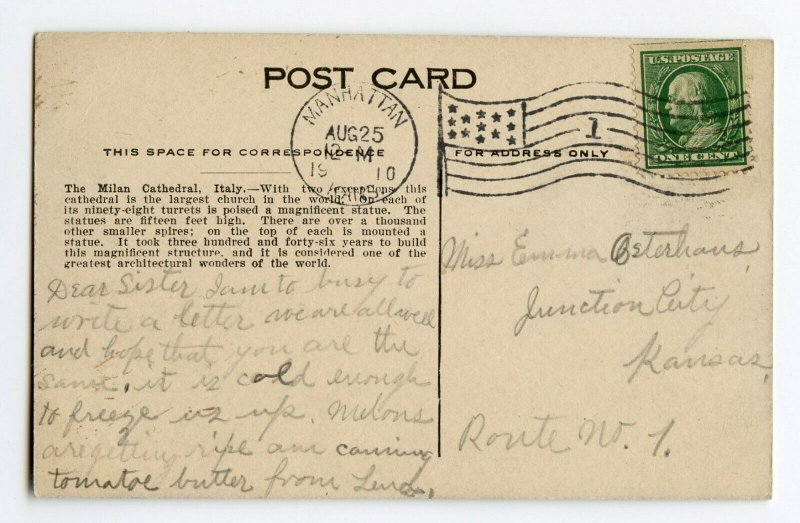 POST CARD
MANHATTAN
AUG 25
12 M
19 10
KANS.
1
U.S. POSTAGE
ONE CENT
THIS SPACE FOR CORRESPONDENCE
FOR ADDRESS ONLY
The Milan Cathedral, Italy.—With two exceptions this
cathedral is the largest church in the world. On each of
its ninety-eight turrets is poised a magnificent statue. The
statues are fifteen feet high. There are over a thousand
other smaller spires; on the top of each is mounted a
statue. It took three hundred and forty-six years to build
this magnificent structure, and it is considered one of the
greatest architectural wonders of the world.
Dear Sister I am to busy to
write a letter we are all well
and hope that you are the
same, it is cold enough
to freeze us up. Melons
are getting ripe am canning
tomatoe butter from Lena,
Miss Emma Osterhaus,
Junction City
Kansas,
Route No. 1.